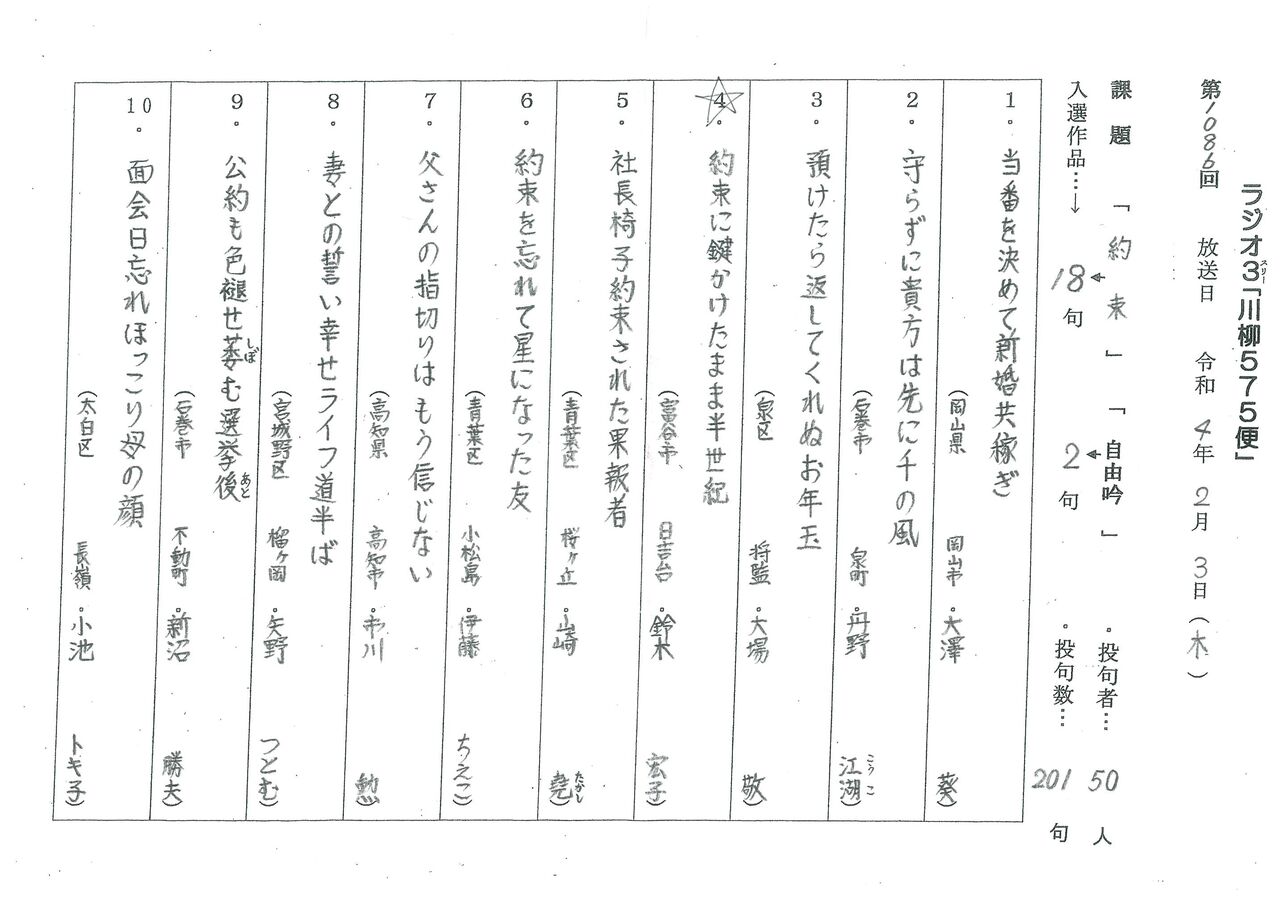 ラジオ3「川柳575便」
スリー
第1086回 放送日 令和 4年 2月 3日(木)
課題 「約束」「自由吟」 。投句者… 50 人
入選作品…→ 18 句 2 句 。投句数… 201 句
1。当番を決めて新婚共稼ぎ
(岡山県 岡山市。大澤 葵)
2。守らずに貴方は先に千の風
(石巻市 泉町。丹野 江湖)
こうこ
3。預けたら返してくれぬお年玉
(泉区 将監。大場 敬)
4。約束に鍵かけたまま半世紀
(富谷市、 日吉台。鈴木 宏子)
5。社長椅子約束された果報者
(青葉区 桜ヶ丘。山崎 堯)
たかし
6。約束を忘れて星になった友
(青葉区 小松島。伊藤 ちえこ)
7。父さんの指切りはもう信じない
(高知県 高知市。市川 勲)
8。妻との誓い幸せライフ道半ば
(宮城野区 榴ヶ岡。矢野 つとむ)
9。公約も色褪せ萎む選挙後
しぼ あと
(石巻市 不動町。新沼 勝夫)
10。面会日忘れほっこり母の顔
(太白区 長嶺。小池 トキ子)